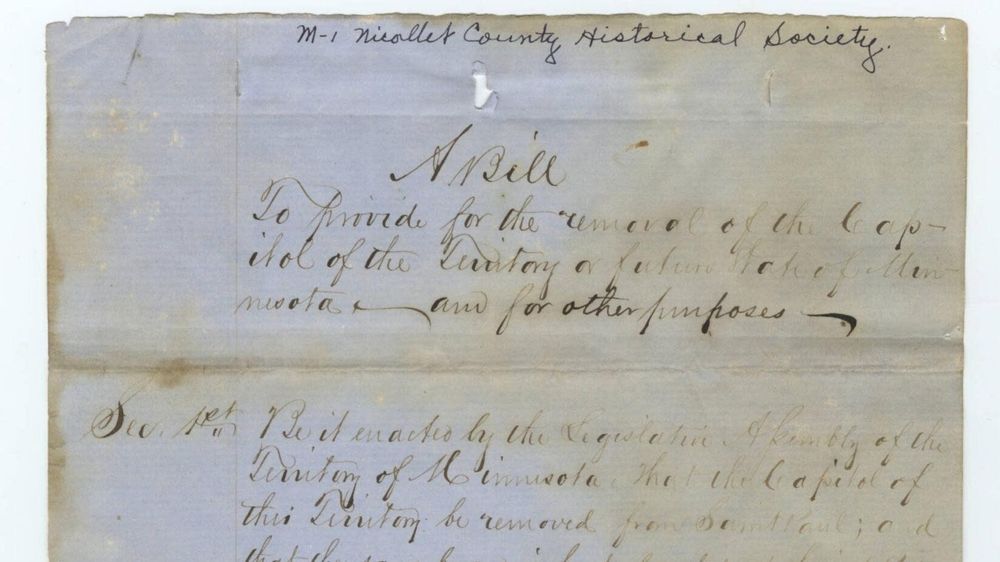 M-1 Nicollet County Historical Society.
A Bill
To provide for the removal of the Cap-
itol of the Territory or future State of Min-
nesota and for other purposes
Sec. 1st Be it enacted by the Legislative Assembly of the
Territory of Minnesota. That the Capitol of
this Territory be removed from Saint Paul; and
that